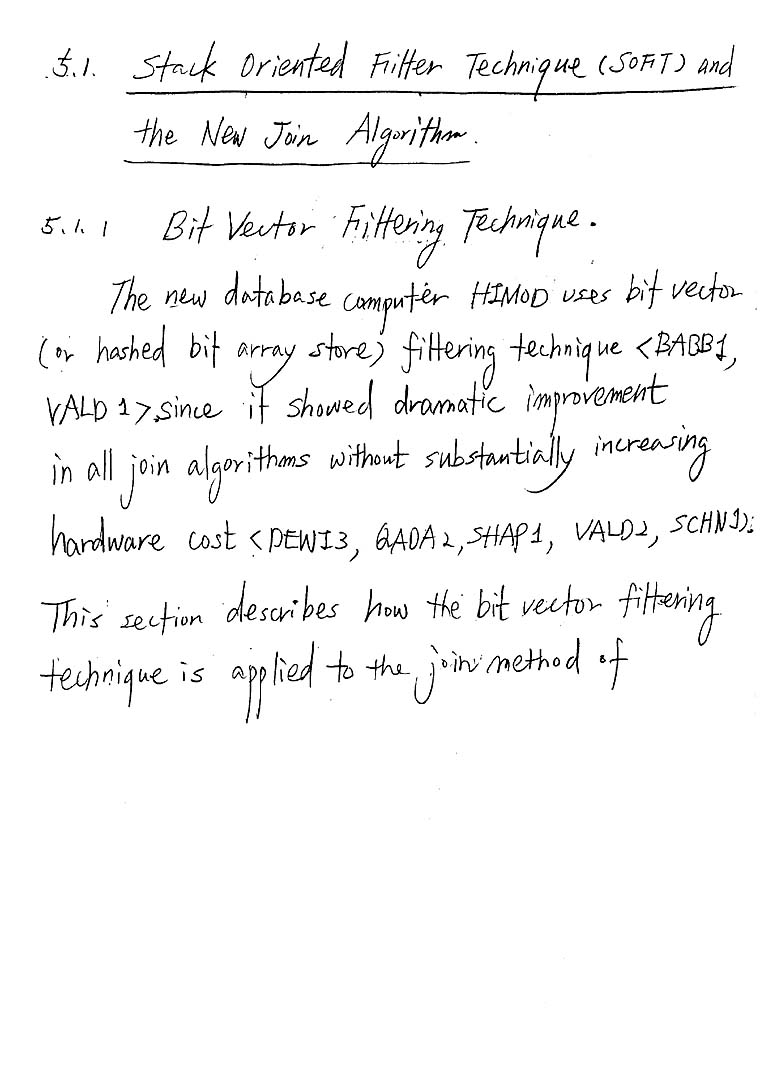 5.1. Stack Oriented Filter Technique (SOFT) and
the New Join Algorithm.
5.1.1 Bit Vector Filtering Technique.
The new database computer HIMOD uses bit vector
(or hashed bit array store) filtering technique <BABB1,
VALD1>, since it showed dramatic improvement
in all join algorithms without substantially increasing
hardware cost <DEWI3, QADA2, SHAP1, VALD2, SCHN1>.
This section describes how the bit vector filtering
technique is applied to the join method of